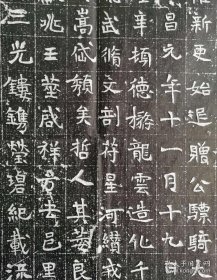 新更始追贈公驃騎
昌元年十一月十九日
德擬龍雲造化千
武脩文剖符星河續我
嵩岱頹矣哲人其萎良
兆王塋咸祥去邑里
三光鏤鐫瑩碧紀載